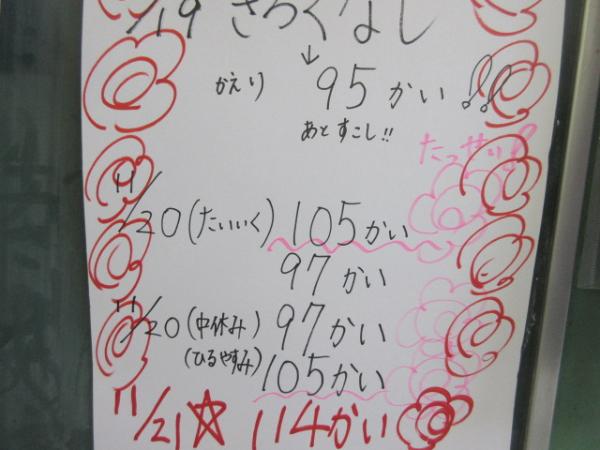 11/19 きろくなし
↓
かえり 95かい!!
あとすこし!!
たっせい!
11/20(たいいく) 105かい
97かい
11/20(中休み) 97かい
(ひるやすみ) 105かい
11/21☆ 114かい